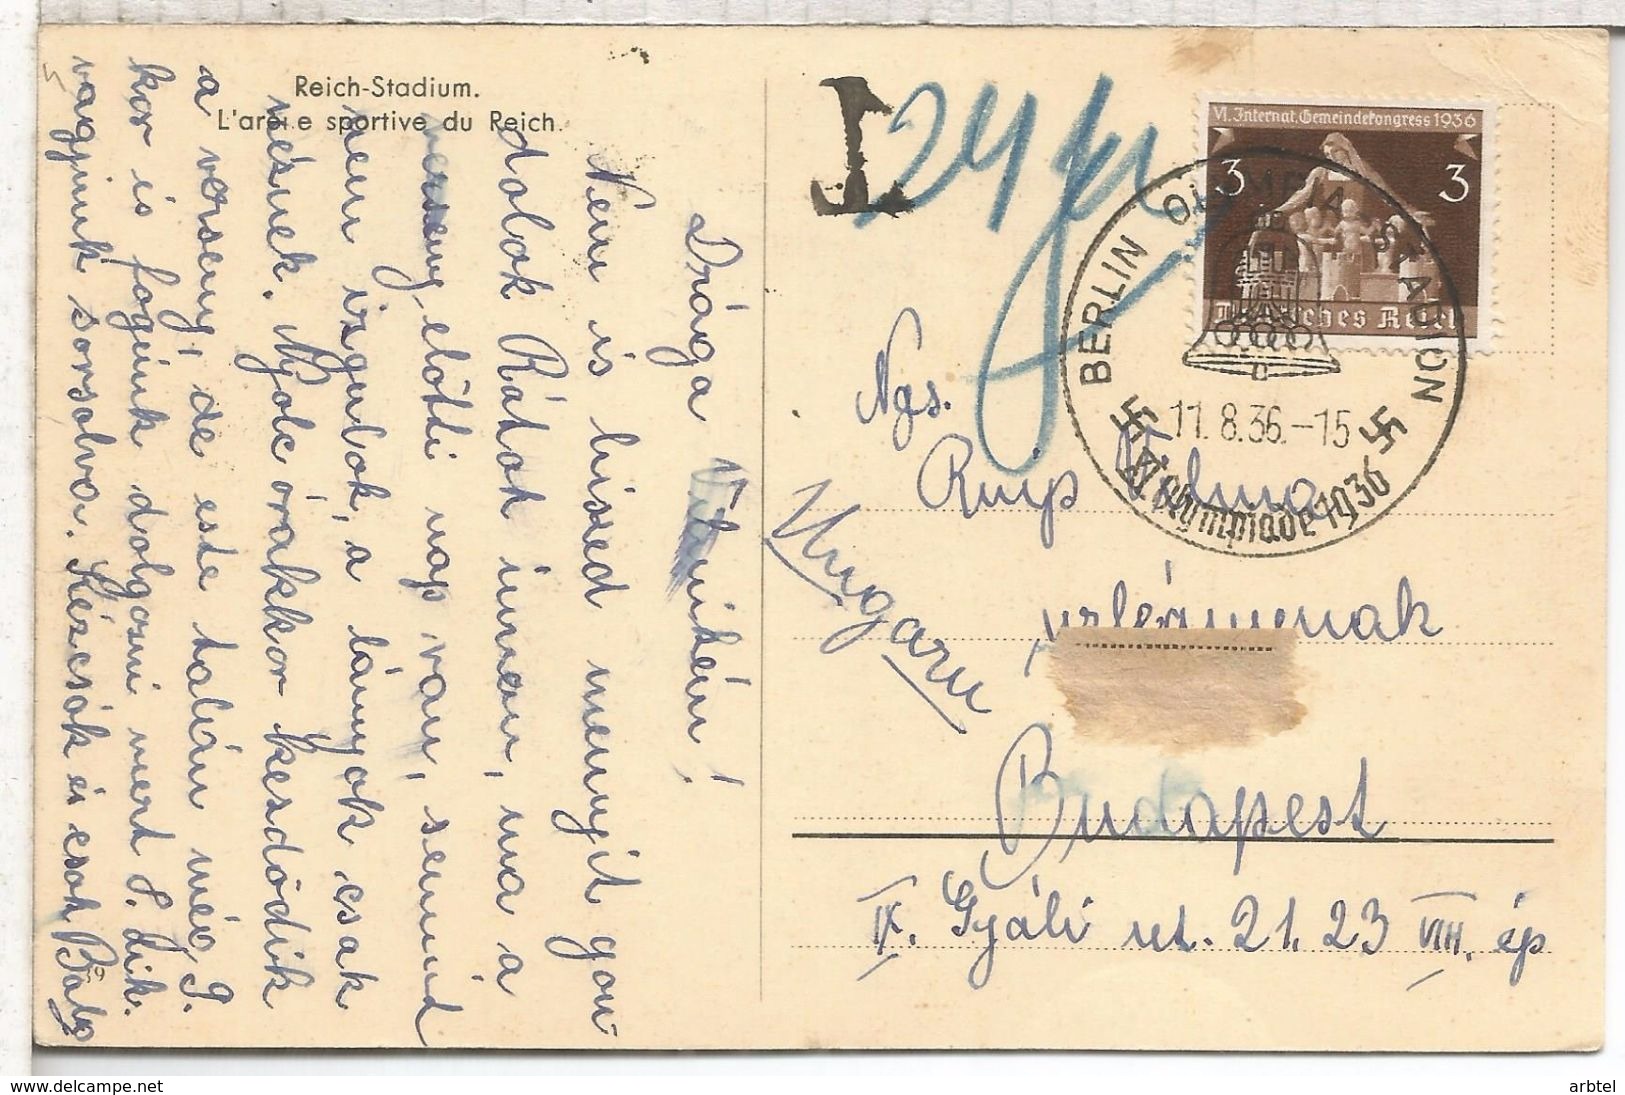 Reich-Stadium.
L'arène sportive du Reich.
Drága
Nem is hiszed mennyit gon
dolok Rátok innen, ma a
verseny előtti nap van, semmit
nem izgulok, a lányok csak
késnek. Nyolc órakkor kezdődik
a verseny, de este talán még 9.
kor is fogunk dolgozni mert
vagyunk sorsolva. Kézcsók és csók Baby
T
24
VI. Internat. Gemeindekongress 1936
3 3
Deutsches Reich
BERLIN OLYMPIA-STADION
11.8.36.-15
XI. Olympiade 1936
Ngs.
Ruip
urleánynak
Ungarn
Budapest
IX. Gyáli ut. 21.23 VIII. ép
arbtel